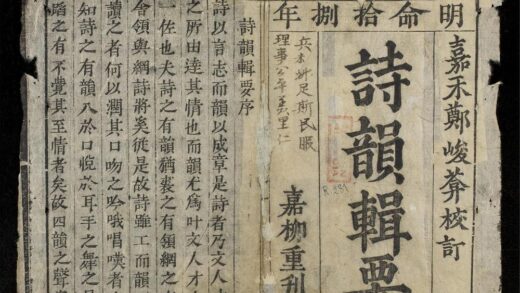 明命拾捌年
嘉禾鄭峻葊校訂
詩韻輯要
嘉柳重刊
足斯民服
理事公平美里仁
R.291
詩韻輯要序
詩以言志而韻以成章是詩者乃文人才
之所由達其情也而韻尤為叶文人才
一佐也夫詩之有韻猶裘之有領網之
會領與網詩將奚從是故詩雖工而韻
讀之者何以潤其口吻之吟哦唱嘆者
知詩之有韻入於口悅於耳手之舞之
蹈之有不覺其至情者矣故四韻之聲